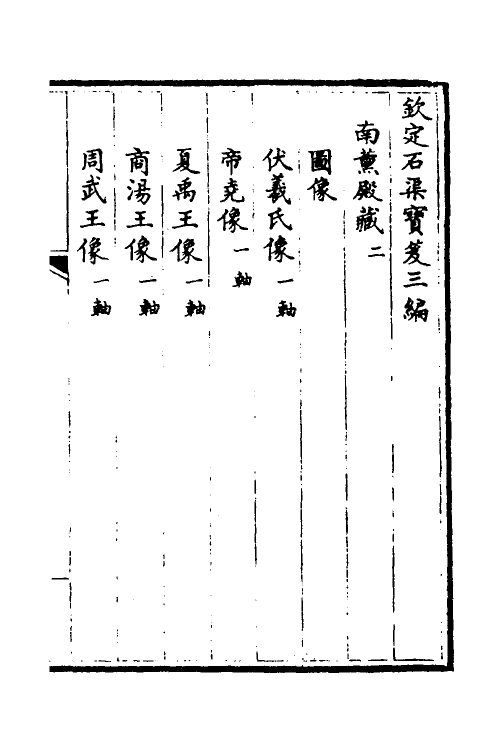 欽定石渠寶笈三編
南薰殿藏二
圖像
伏羲氏像一軸
帝堯像一軸
夏禹王像一軸
商湯王像一軸
周武王像一軸